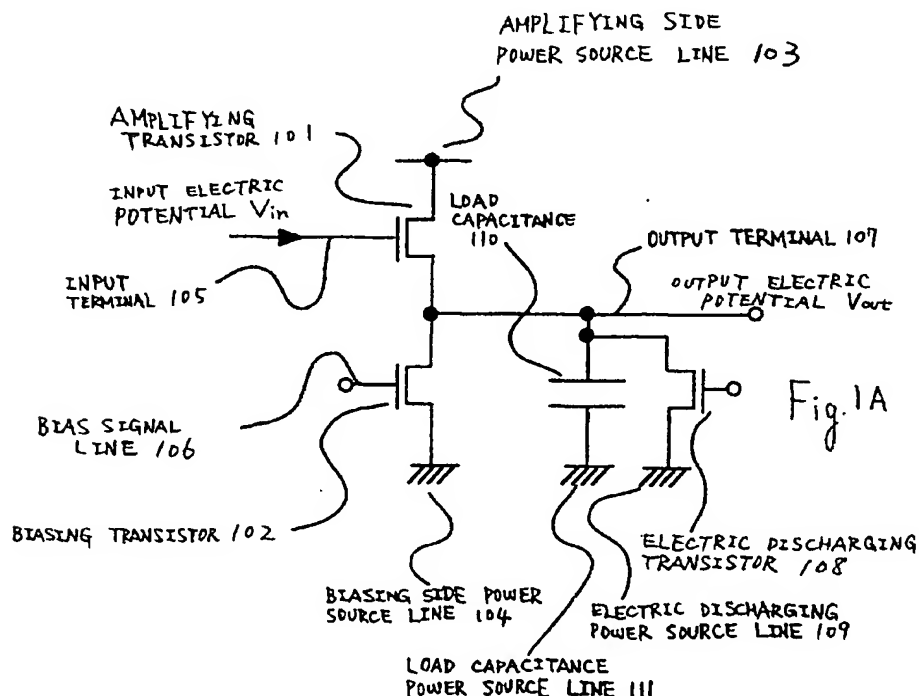 AMPLIFYING SIDE
POWER SOURCE LINE 103
AMPLIFYING
TRANSISTOR 101
INPUT ELECTRIC
POTENTIAL Vin
LOAD
CAPACITANCE
110
OUTPUT TERMINAL 107
INPUT
TERMINAL 105
OUTPUT ELECTRIC
POTENTIAL Vout
Fig. 1A
BIAS SIGNAL
LINE 106
BIASING TRANSISTOR 102
ELECTRIC DISCHARGING
TRANSISTOR 108
BIASING SIDE POWER
SOURCE LINE 104
ELECTRIC DISCHARGING
POWER SOURCE LINE 109
LOAD CAPACITANCE
POWER SOURCE LINE 111